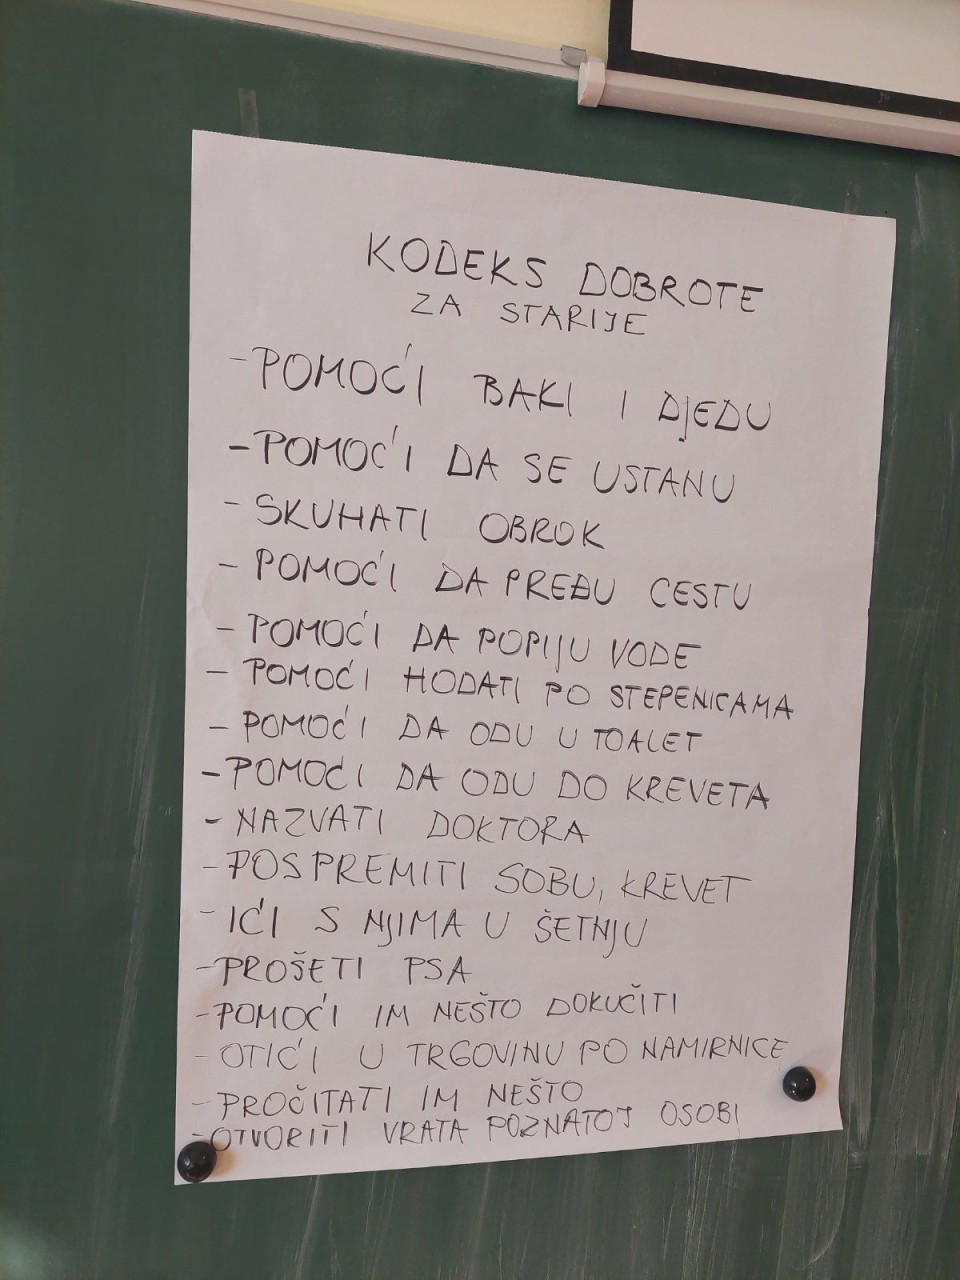 KODEKS DOBROTE
ZA STARIJE
- POMOĆI BAKI I DJEDU
- POMOĆI DA SE USTANU
- SKUHATI OBROK
- POMOĆI DA PREĐU CESTU
- POMOĆI DA POPIJU VODE
- POMOĆI HODATI PO STEPENICAMA
- POMOĆI DA ODU U TOALET
- POMOĆI DA ODU DO KREVETA
- NAZVATI DOKTORA
- POSPREMITI SOBU, KREVET
- IĆI S NJIMA U ŠETNJU
- PROŠETI PSA
- POMOĆI IM NEŠTO DOKUČITI
- OTIĆI U TRGOVINU PO NAMIRNICE
- PROČITATI IM NEŠTO
- OTVORITI VRATA POZNATOJ OSOBI